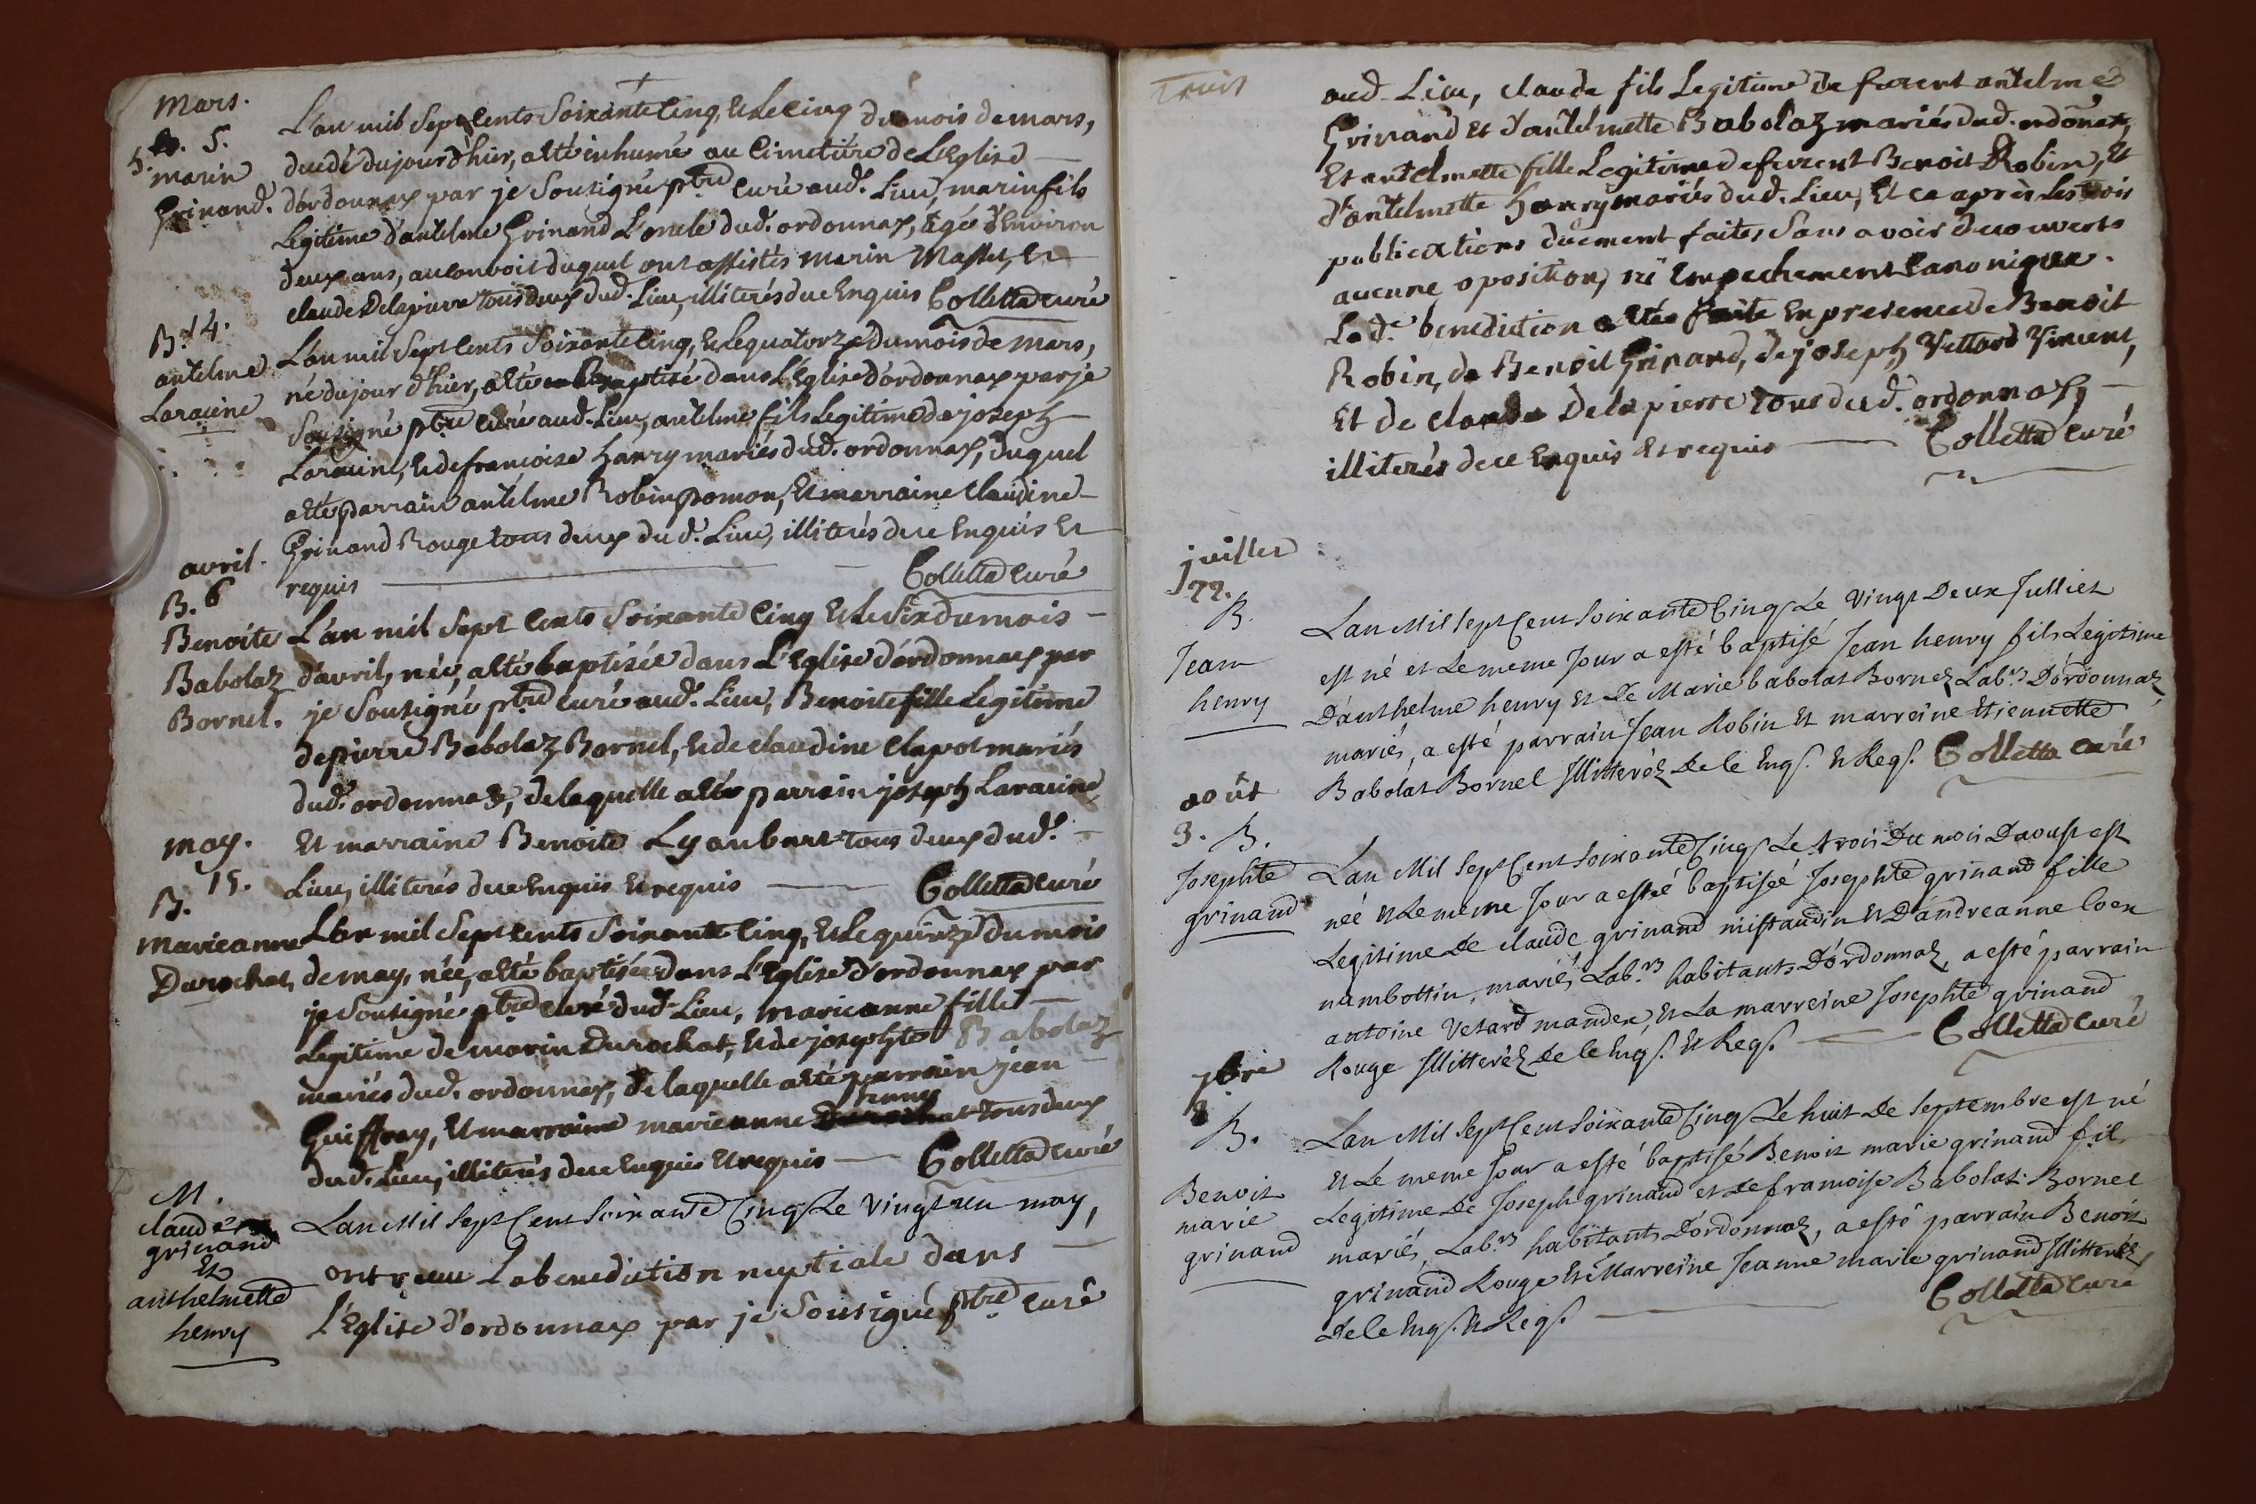 Mars.
S. 5.
marin
Grinand.
L'an mil Sept Cents Soixante Cinq, et le cinq du mois de mars,
decedé du jour d'hier, a été inhumé au Cimetière de L'Eglise
d'ordonnax par je Sousigné ptre curé aud. Lieu, marin fils
Legitime d'antelme Grinand L'oncle dud. ordonnax, agé d'environ
deux ans, au convoit duquel ont assistés marin Masset, Et
claude Delapierre tous deux dud. Lieu, illiterés de ce Enquis Colletta curé
B. 14.
antelme
Laracine
L'an mil Sept Cents Soixante Cinq, et le quatorze du mois de mars,
né du jour d'hier, a été baptisé dans L'Eglise d'ordonnax par je
Sousigné ptre curé aud. Lieu, antelme fils Legitime de joseph
Laracine, et de francoise hanry mariés dud. ordonnax, duquel
a été parrain antelme Robin pomon, Et marraine Claudine
Grinand Rouge tous deux dud. Lieu, illiterés de ce Enquis Et
requis Colletta curé
avril.
B. 6
Benoite
Babolaz
Bornel.
L'an mil Sept Cents Soixante Cinq Et le Six du mois
d'avril, née, a été baptisée dans L'Eglise d'ordonnax par
je Sousigné ptre curé aud. Lieu, Benoite fille Legitime
de pierre Babolaz Bornel, et de claudine clapot mariés
dud. ordonnax, de laquelle a été parrain joseph Laracine
Et marraine Benoite Lyonbart tous deux dud.
Lieu, illiterés de ce Enquis Et requis Colletta curé
may.
B. 15.
marieanne
Durochat,
L'an mil Sept Cents Soixante Cinq, Et le quinze du mois
de may, née, a été baptisée dans L'Eglise d'ordonnax par
je Sousigné ptre curé dud. Lieu, marieanne fille
Legitime de marin Durochat, et de josephte Babolaz
mariés dud. ordonnax, de laquelle a été parrain jean
Guiffray, Et marraine marieanne hanry tous deux
dud. Lieu, illiterés de ce Enquis Et requis Colletta curé
M.
claude
grinand
Et
anthelmette
henry
L'an Mil Sept Cent Soixante Cinq Le Vingt un may,
ont reçu La benediction nuptiale dans
L'Eglise d'ordonnax par je Sousigné ptre curé
aud. Lieu, claude fils Legitime de furent antelme
Grinand Et d'antelmette Babolaz mariés dud. ordonax,
Et antelmette fille Legitime de furent Benoit Robin, Et
d'antelmette hanry mariés dud. Lieu, Et ce après Les trois
publications duement faites Sans avoir decouverts
aucune oposition, ni Empechement Canonique.
Lad.e benediction a été faite En presence de Benoit
Robin, de Benoit Grinand, de joseph Vettard Vincent,
Et de claude Delapierre tous dud. ordonnax,
illiterés de ce Enquis Et requis Colletta curé
juillet
22.
B.
Jean
henry
Lan Mil Sept Cent Soixante Cinq Le Vingt Deux Julliet
est né et Le meme Jour a esté baptisé Jean henry fils Légitime
D'anthelme henry Et De Marie babolat Bornel Lab.rs D'órdonnaz,
mariés, a esté parrain Jean Robin Et marreine Etiennette
Babolat Bornel Jllitteréz De Ce Enqs. Et Reqs. Colletta curé
août
3. B.
Josephte
grinand
Lan Mil Sept Cent Soixante Cinq Le trois Du mois Daoust est
neé Et Le meme Jour a esté baptiseé Josephte grinand fille
Legitime De claude grinand mistaudin Et D'andreanne Coex
nambottin, mariés, Lab.rs habitants D'órdonnaz, a esté parrain
antoine Vetard mandex, Et La marreine Josephte grinand
Rouge Jllitteréz De Ce Enqs. Et Reqs. Colletta curé
7bre
8.
B.
Benoit
marie
grinand
Lan Mil Sept Cent Soixante Cinq Le huit De Septembre est né
Et Le meme Jour a esté baptisé Benoit marie grinand fils
Legitime De Joseph grinand et De francoise Babolat Bornel
mariés, Lab.rs habitants D'órdonnaz, a esté parrain Benoit
grinand Rouge Et Marreine Jeanne marie grinand Jllitteréz
De Ce Enqs. Et Reqs. Colletta curé